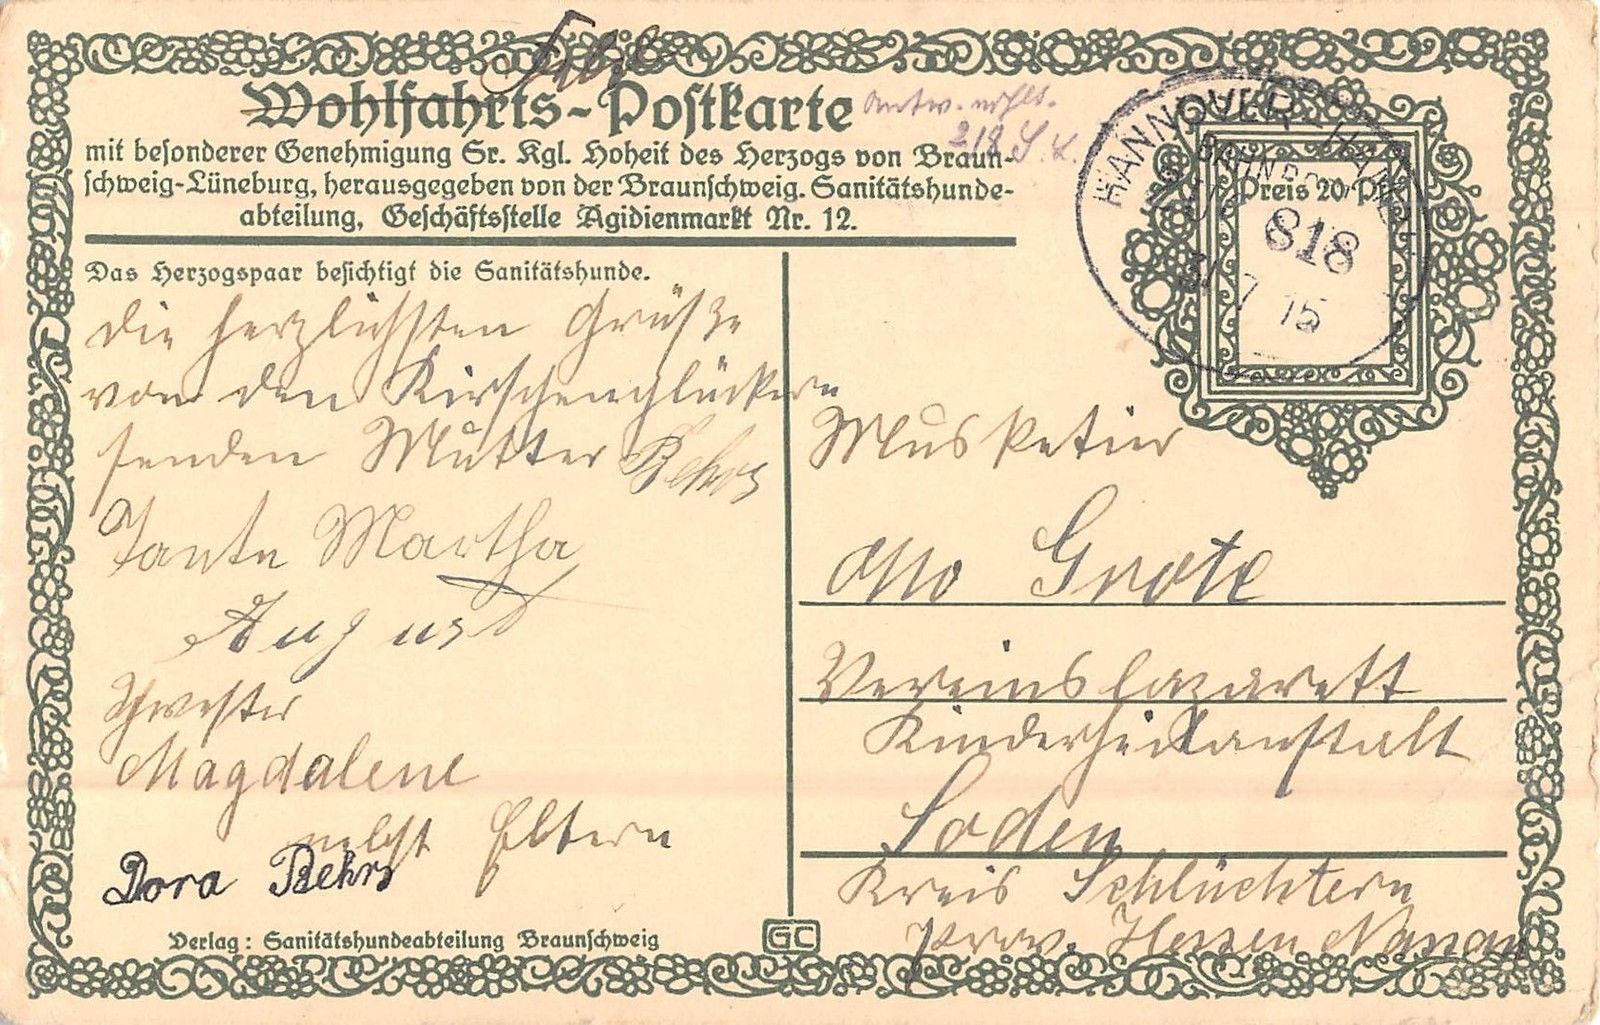 Feld
Wohlfahrts-Postkarte
Antw.
2/8
mit besonderer Genehmigung Sr. Kgl. Hoheit des Herzogs von Braun-
schweig-Lüneburg, herausgegeben von der Braunschweig. Sanitätshunde-
abteilung, Geschäftsstelle Ägidienmarkt Nr. 12.
HANNOVER-
BAHNPOST
Preis 20 Pf.
818
31 7 15
Das Herzogspaar besichtigt die Sanitätshunde.
die herzlichsten Grüße
von den
senden Mutter Behrs
Tante Martha
August
Schwester
Magdalene
nebst Eltern
Dora Behrs
Musketier
Otto Grote
Vereinslazarett
Kinderheilanstalt
Soden
Kreis Schlüchtern
Prov. Hessen Nassau
Verlag: Sanitätshundeabteilung Braunschweig
GC